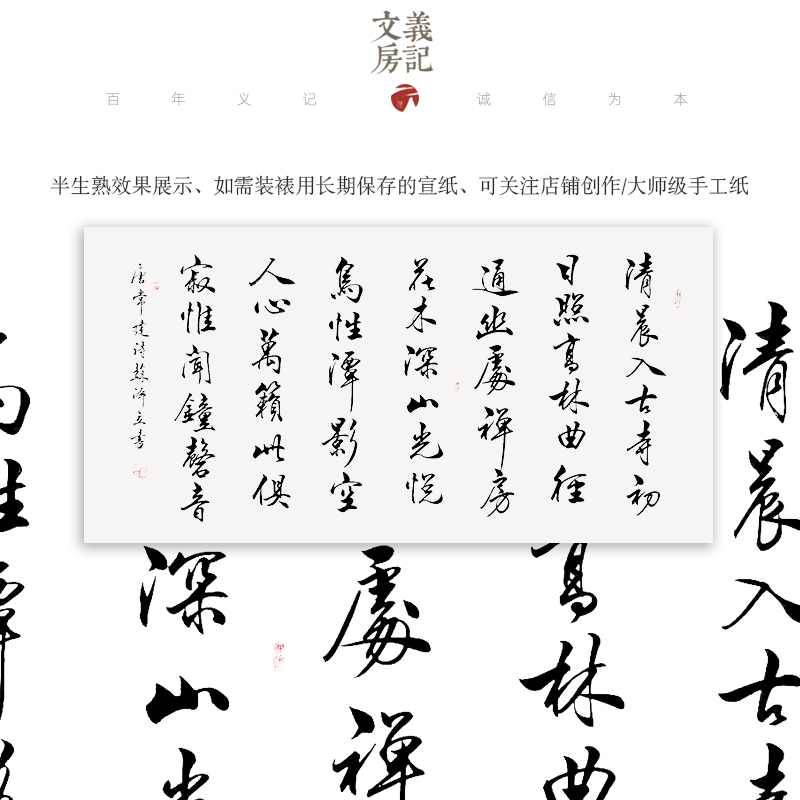 義記
文房
百年义记 诚信为本
半生熟效果展示、如需装裱用长期保存的宣纸、可关注店铺创作/大师级手工纸
清晨入古寺初
日照高林曲径
通幽處禅房
花木深山光悦
鳥性潭影空
人心萬籟此俱
寂惟闻鐘磬音
唐常建诗蘇立書
清晨入古
高林曲
處禅
深山
性潭